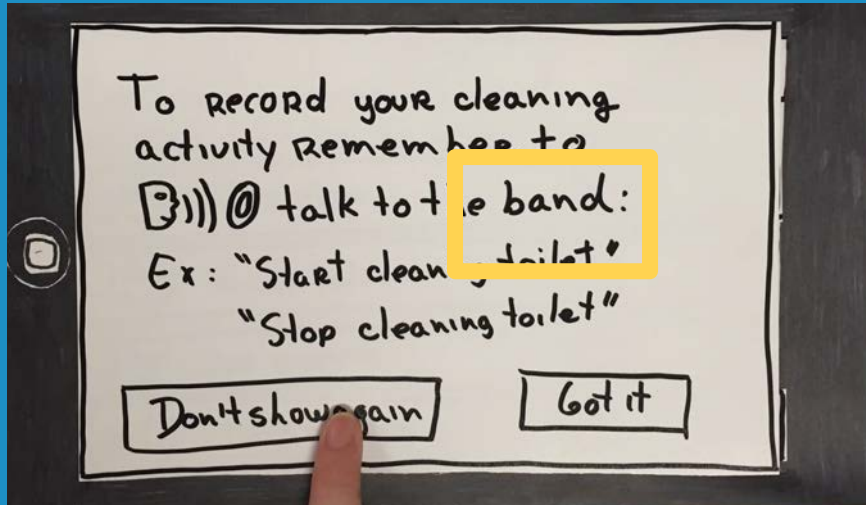 To Record your cleaning
activity Remember to
talk to the band:
Ex: "Start cleaning toilet"
"Stop cleaning toilet"
Don't show again
Got it